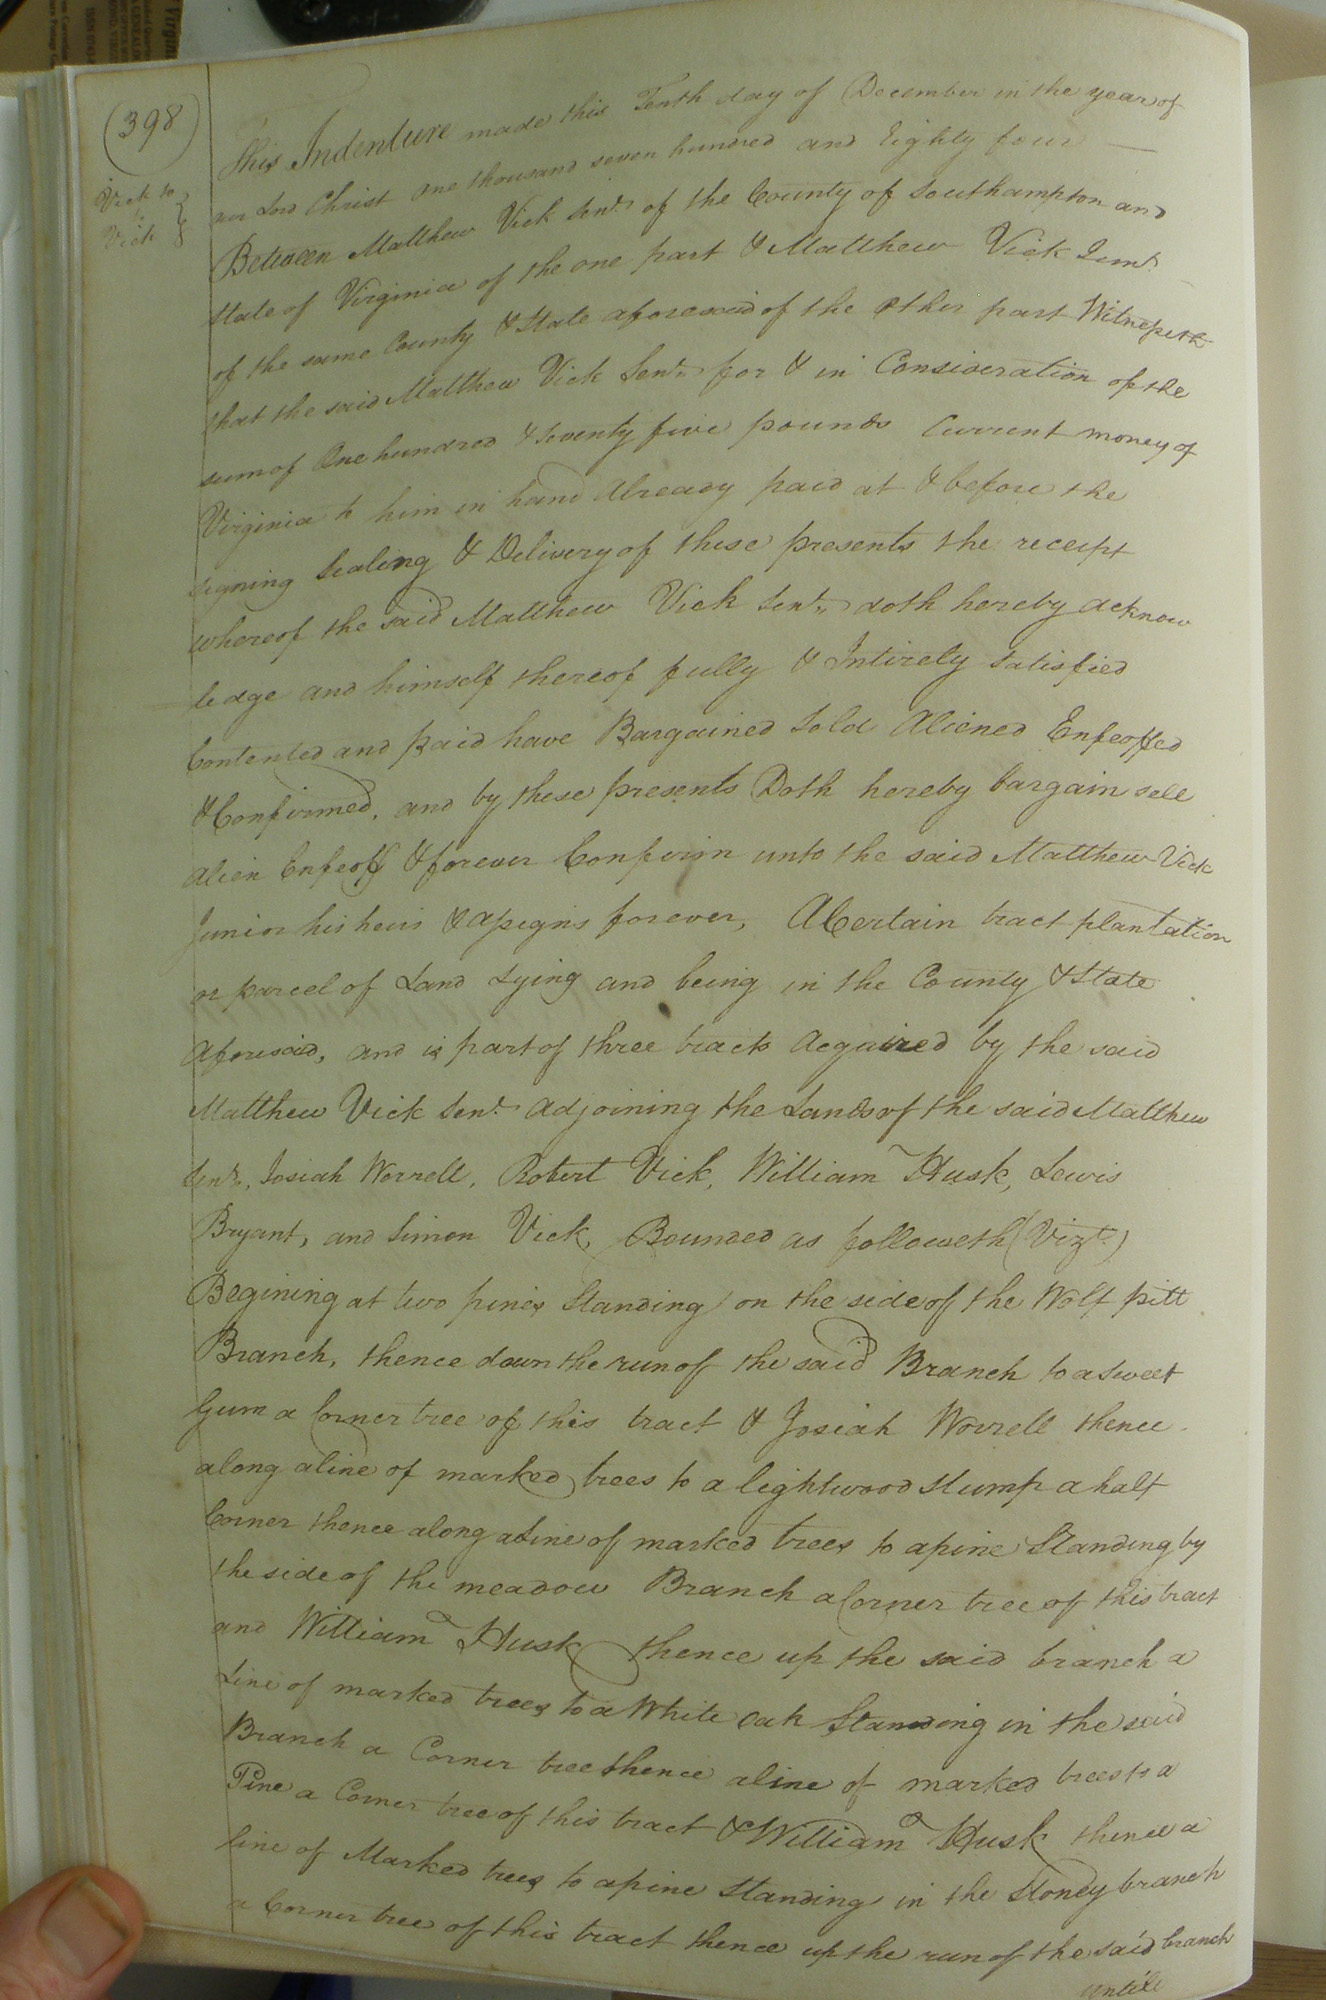 (398)
Vick to
Vick
This Indenture made this Tenth day of December in the year of
our Lord Christ One thousand seven hundred and Eighty four
Between Matthew Vick Senr. of the County of Southampton and
state of Virginia of the one part & Matthew Vick Junr.
of the same County & State aforesaid of the other part Witnesseth
that the said Matthew Vick Senr. for & in Consideration of the
sum of One hundred & seventy five pounds Current money of
Virginia to him in hand Already paid at & before the
signing Sealing & Delivery of these presents the receipt
whereof the said Matthew Vick Senr. doth hereby acknow
ledge and himself thereof fully & Intirely satisfied
Contented and paid have Bargained Sold Aliened Enfeoffed
& Confirmed, and by these presents Doth hereby bargain sell
Alien Enfeoff & forever Confirm unto the said Matthew Vick
Junior his heirs & assigns forever, A Certain tract plantation
or parcel of Land Lying and being in the County & State
Aforesaid, and is part of three tracts Acquired by the said
Matthew Vick Senr. Adjoining the Lands of the said Matthew
Senr., Josiah Worrell, Robert Vick, William Husk, Lewis
Bryant, and Simon Vick, Bounded as followeth (Vizt.)
Begining at two pines Standing on the side of the Wolf pitt
Branch, thence down the run of the said Branch to a Sweet
Gum a Corner tree of this tract & Josiah Worrell thence
along a line of marked trees to a lightwood Stump a half
Corner thence along a Line of marked trees to a pine Standing by
the side of the meadow Branch a Corner tree of this tract
and William Husk thence up the said branch a
Line of marked trees to a White oak Standing in the said
Branch a Corner tree thence a line of marked trees to a
Pine a Corner tree of this tract & William Husk thence a
line of Marked trees to a pine Standing in the Stoney branch
a Corner tree of this tract thence up the run of the said branch
untill